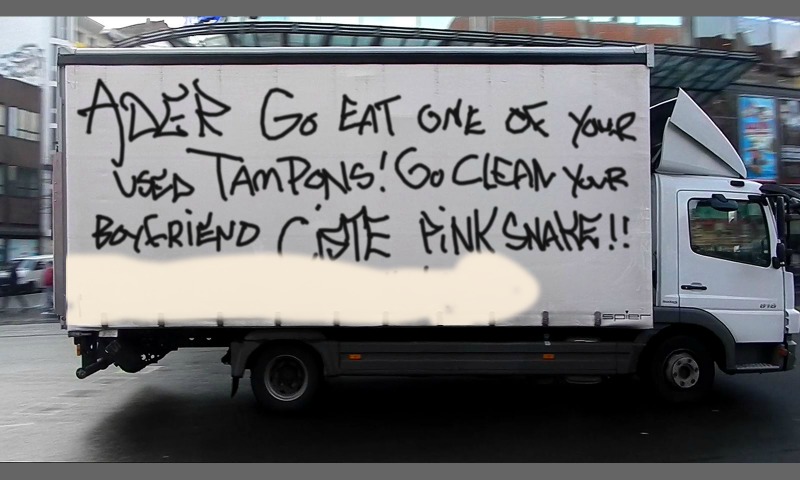 ADER Go EAT ONE OF YOUR
USED TAMPONS! Go CLEAN YOUR
BOYFRiEND PiNK SNAKE!!
spier